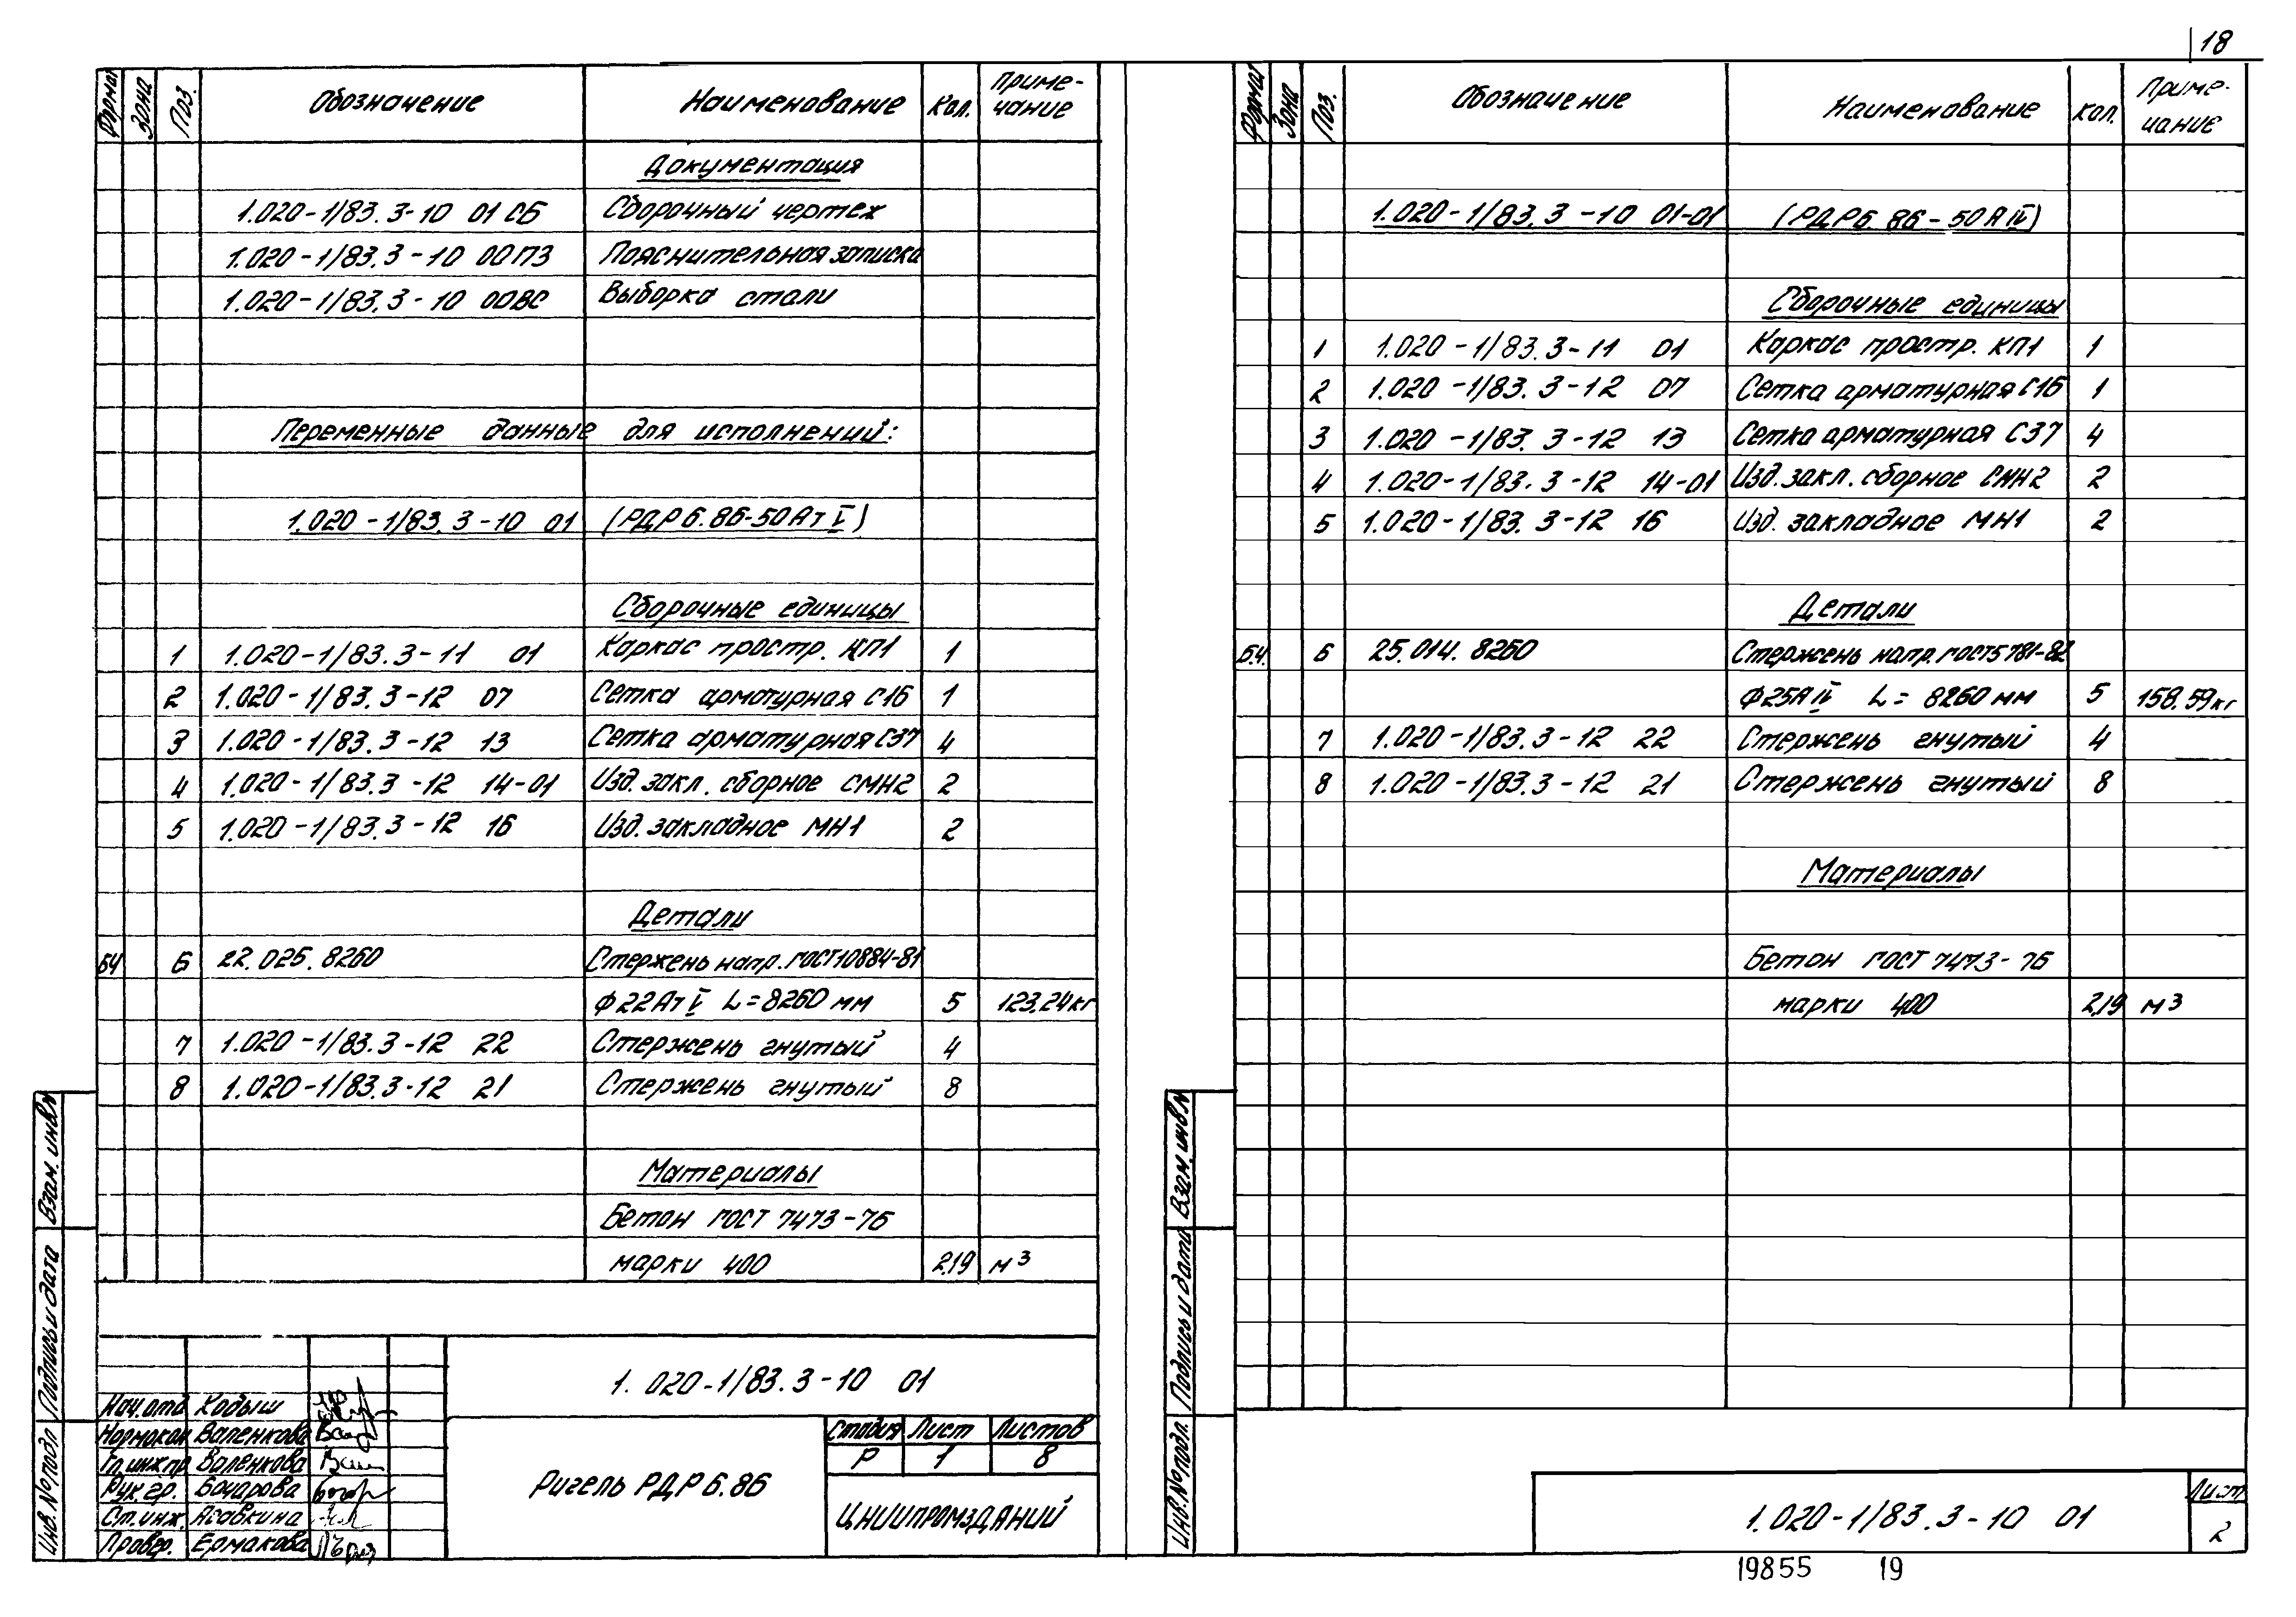 18
Формат Зона Поз. Обозначение Наименование Кол. Приме-
чание
Документация
1.020-1/83.3-10 01 СБ Сборочный чертеж
1.020-1/83.3-10 00ПЗ Пояснительная записка
1.020-1/83.3-10 00ВС Выборка стали
Переменные данные для исполнений:
1.020-1/83.3-10 01 (РДР6.86-50АтV)
Сборочные единицы
1 1.020-1/83.3-11 01 Каркас простр. КП1 1
2 1.020-1/83.3-12 07 Сетка арматурная С16 1
3 1.020-1/83.3-12 13 Сетка арматурная С37 4
4 1.020-1/83.3-12 14-01 Изд. закл. сборное СМН2 2
5 1.020-1/83.3-12 16 Изд. закладное МН1 2
Детали
БЧ 6 22.025.8260 Стержень напр. ГОСТ10884-81
Ф22АтV L=8260 мм 5 123.24кг
7 1.020-1/83.3-12 22 Стержень гнутый 4
8 1.020-1/83.3-12 21 Стержень гнутый 8
Материалы
Бетон ГОСТ 7473-76
марки 400 2,19 м3
Взам. инв.№
Подпись и дата
Инв.№ подл
1.020-1/83.3-10 01
Нач.отд Кодыш
Нормокон Валенкова
Гл.инж.пр Валенкова
Рук.гр. Бочарова
Ст.инж. Асавкина
Провер. Ермакова
Ригель РДР6.86
Стадия Лист Листов
Р 1 8
ЦНИИПРОМЗДАНИЙ
Формат Зона Поз. Обозначение Наименование Кол. Приме-
чание
1.020-1/83.3-10 01-01 (РДР6.86-50АIV)
Сборочные единицы
1 1.020-1/83.3-11 01 Каркас простр. КП1 1
2 1.020-1/83.3-12 07 Сетка арматурная С16 1
3 1.020-1/83.3-12 13 Сетка арматурная С37 4
4 1.020-1/83.3-12 14-01 Изд. закл. сборное СМН2 2
5 1.020-1/83.3-12 16 Изд. закладное МН1 2
Детали
Б.Ч. 6 25.014.8260 Стержень напр. ГОСТ5781-82
Ф25АIV L=8260 мм 5 158.59кг
7 1.020-1/83.3-12 22 Стержень гнутый 4
8 1.020-1/83.3-12 21 Стержень гнутый 8
Материалы
Бетон ГОСТ 7473-76
марки 400 2,19 м3
Взам. инв.№
Подпись и дата
Инв.№ подл.
1.020-1/83.3-10 01
Лист
2
19855 19